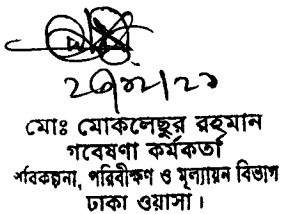 ২৭/১২/২১
মোঃ মোকলেছুর রহমান
গবেষণা কর্মকর্তা
পরিকল্পনা, পরিবীক্ষণ ও মূল্যায়ন বিভাগ
ঢাকা ওয়াসা।